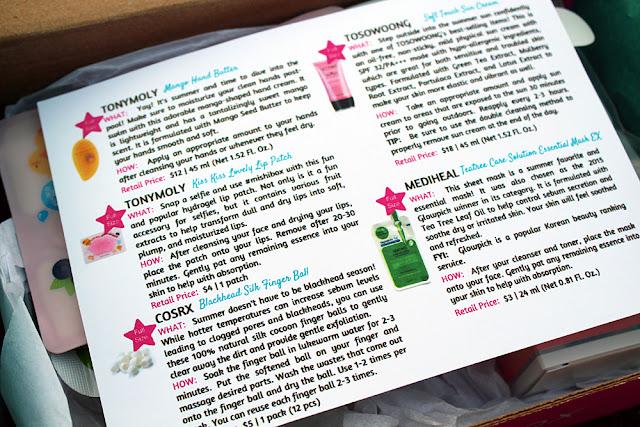 TONYMOLY Mango Hand Butter
Full Size
WHAT: Yay! It's summer and time to dive into the
pool! Make sure to moisturize your clean hands post-
swim with this adorable mango-shaped hand cream. It
is lightweight and has a tantalizingly sweet mango
scent. It is formulated with Mango Seed Butter to keep
your hands smooth and soft.
HOW: Apply an appropriate amount to your hands
after cleansing your hands or whenever they feel dry.
Retail Price: $12 | 45 ml (Net 1.52 Fl. Oz.)
TONYMOLY Kiss Kiss Lovely Lip Patch
Full Size
WHAT: Snap a selfie and use #mishibox with this fun
and popular hydrogel lip patch. Not only is it a fun
accessory for selfies, but it contains various fruit
extracts to help transform dull and dry lips into soft,
plump, and moisturized lips.
HOW: After cleansing your face and drying your lips,
place the patch onto your lips. Remove after 20-30
minutes. Gently pat any remaining essence into your
skin to help with absorption.
Retail Price: $4 | 1 patch
COSRX Blackhead Silk Finger Ball
Full Size
WHAT: Summer doesn't have to be blackhead season!
While hotter temperatures can increase sebum levels
leading to clogged pores and blackheads, you can use
these 100% natural silk cocoon finger balls to gently
clear away the dirt and provide gentle exfoliation.
HOW: Soak the finger ball in lukewarm water for 2-3
minutes. Put the softened ball on your finger and
massage desired parts. Wash the wastes that come out
onto the finger ball and dry the ball. Use 1-2 times per
You can reuse each finger ball 2-3 times.
$5 | 1 pack (12 pcs)
TOSOWOONG Soft Touch Sun Cream
Full Size
WHAT: Step outside into the summer sun confidently
with one of TOSOWOONG's best-selling items! This is
an oil-free, non-sticky, mild physical sun cream with
SPF 32/PA+++ made with hypo-allergenic ingredients
which are great for both sensitive and troubled skin
types. Formulated with Green Tea Extract, Mulberry
Root Extract, Portulaca Extract, and Lotus Extract to
make your skin more elastic and vibrant as well.
HOW: Take an appropriate amount and apply sun
cream to areas that are exposed to the sun 30 minutes
prior to going outdoors. Reapply every 2-3 hours.
TIP: Be sure to use the double cleansing method to
properly remove sun cream at the end of the day.
Retail Price: $18 | 45 ml (Net 1.52 Fl. Oz.)
MEDIHEAL Teatree Care Solution Essential Mask EX
Full Size
WHAT: This sheet mask is a summer favorite and
essential mask! It was also chosen as the 2015
Glowpick winner in its category. It is formulated with
Tea Tree Leaf Oil to help control sebum secretion and
soothe dry or irritated skin. Your skin will feel soothed
and refreshed.
FYI: Glowpick is a popular Korean beauty ranking
service.
HOW: After your cleanser and toner, place the mask
onto your face. Gently pat any remaining essence into
your skin to help with absorption.
Retail Price: $3 | 24 ml (Net 0.81 Fl. Oz.)